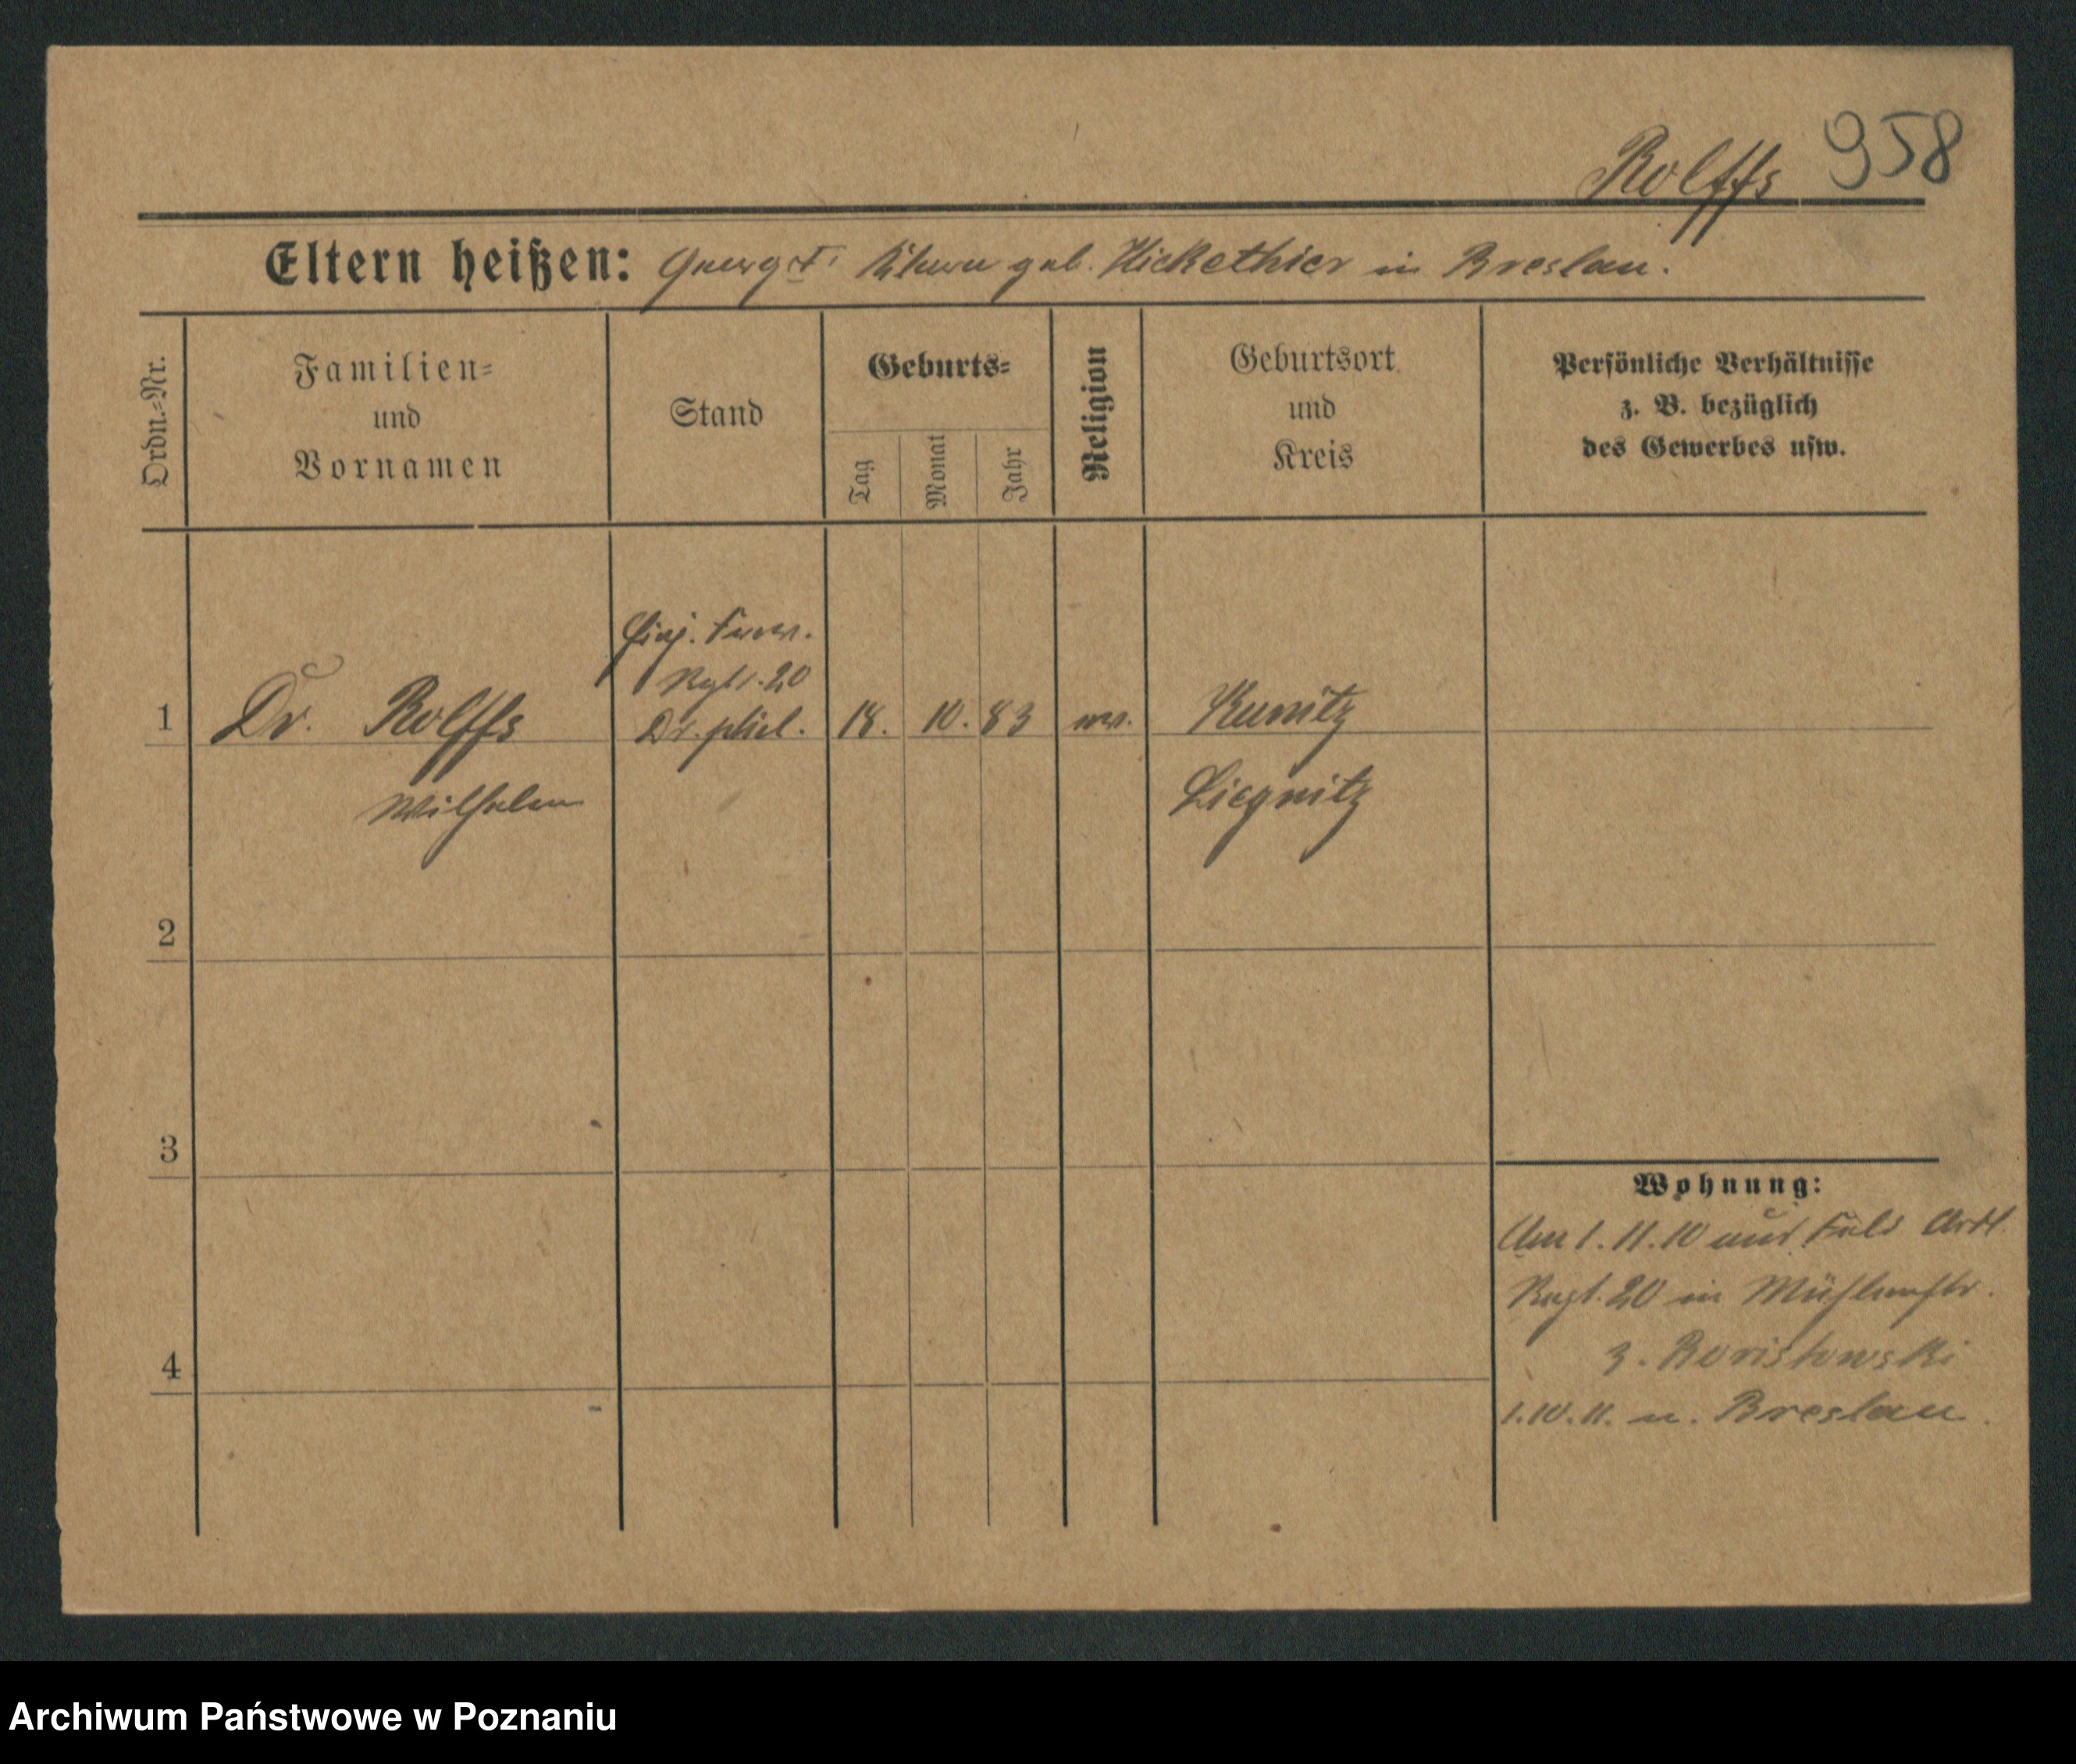 958
Rolffs
Eltern heißen: Georg † geb. Hickethier in Breslau.
Ordn.-Nr.
Familien-
und
Vornamen
Stand
Geburts-
Tag
Monat
Jahr
Religion
Geburtsort
und
Kreis
Persönliche Verhältnisse
z. B. bezüglich
des Gewerbes usw.
Rgt. 20
1 Dr. Rolffs Dr. phil. 18. 10. 83 Kunitz
Wilhelm Liegnitz
2
3
4
Wohnung:
Am 1. 11. 10 Feld Artl
Regt. 20 in Mühlenstr.
3. Boristowski
1.10.11. n. Breslau.
Archiwum Państwowe w Poznaniu